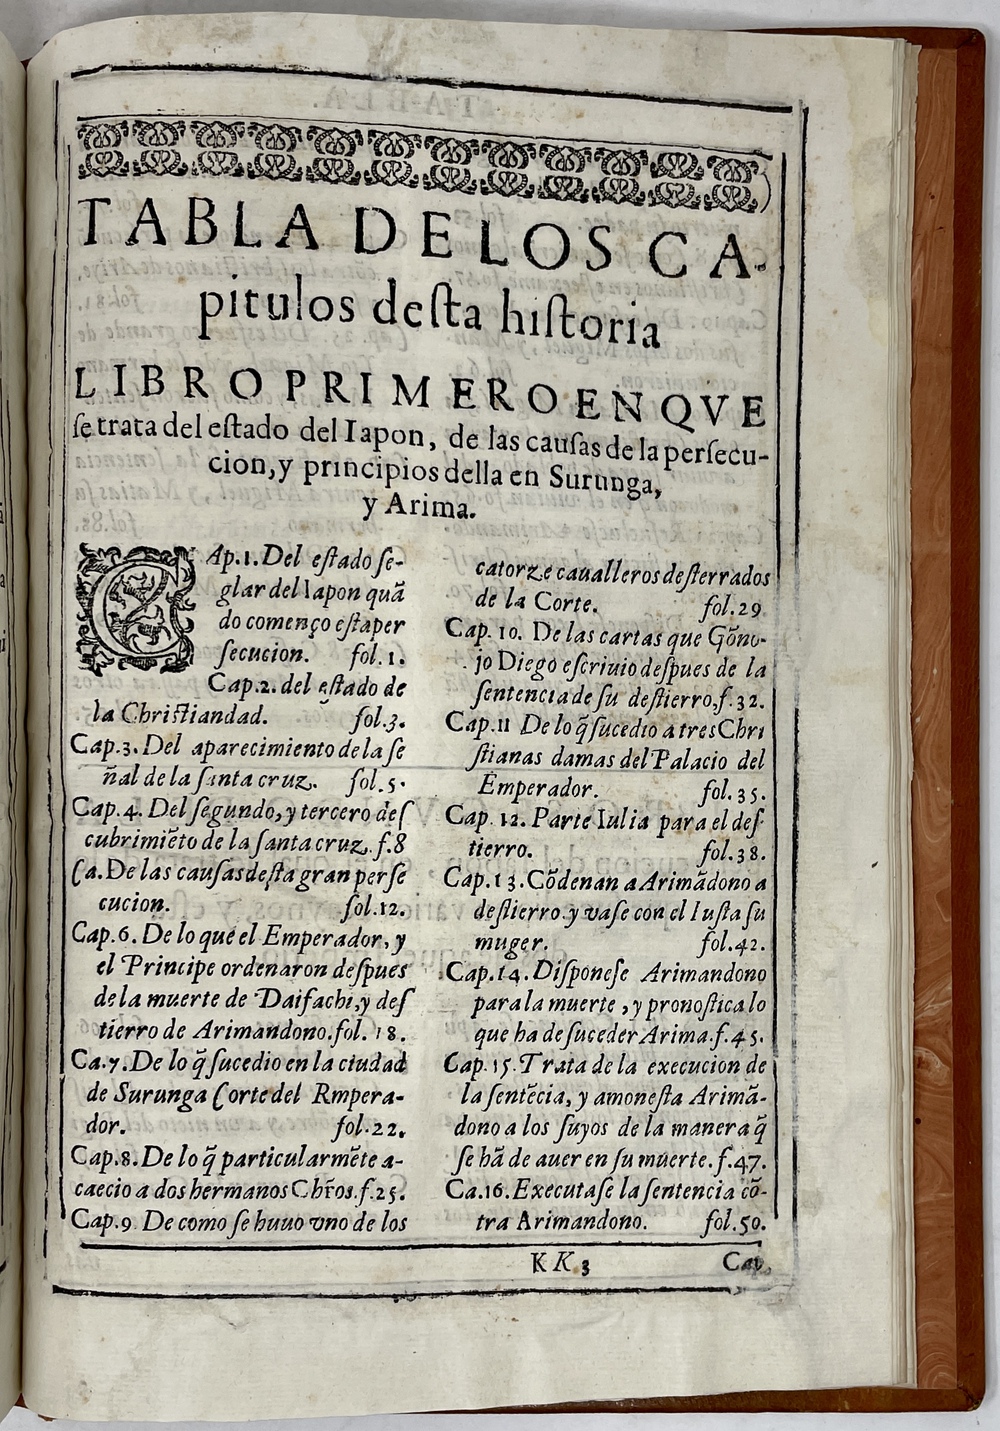 TABLA DE LOS CA-
pitulos desta historia
LIBRO PRIMERO EN QVE
se trata del estado del Iapon, de las causas de la persecu-
cion, y principios della en Surunga,
y Arima.
CAp.1. Del estado se-
glar del Iapon quã
do començo esta per
secucion. fol.1.
Cap.2. del estado de
la Christiandad. fol.3.
Cap.3. Del aparecimiento de la se
ñal de la santa cruz. fol.5.
Cap.4. Del segundo, y tercero des
cubrimiẽto de la santa cruz. f.8
Ca. De las causas desta gran perse
cucion. fol.12.
Cap.6. De lo que el Emperador, y
el Principe ordenaron despues
de la muerte de Daifachi, y des
tierro de Arimandono. fol. 18.
Ca.7. De lo q̃ sucedio en la ciudad
de Surunga Corte del Rmpera-
dor. fol.22.
Cap.8. De lo q̃ particularmẽte a-
caecio a dos hermanos Chr̃os. f.25.
Cap.9. De como se huuo vno de los
catorze caualleros desterrados
de la Corte. fol.29
Cap. 10. De las cartas que Gõno-
jo Diego escriuio despues de la
sentencia de su destierro, f.32.
Cap.11 De lo q̃ sucedio a tres Chri
stianas damas del Palacio del
Emperador. fol.35.
Cap. 12. Parte Iulia para el des-
tierro. fol.38.
Cap.13. Cõdenan a Arimãdono a
destierro. y vase con el Iusta su
muger. fol.42.
Cap.14. Disponese Arimandono
para la muerte, y pronostica lo
que ha de suceder Arima. f.45.
Cap.15. Trata de la execucion de
la sentẽcia, y amonesta Arimã-
dono a los suyos de la manera q̃
se hã de auer en su muerte. f.47.
Ca.16. Executase la sentencia cõ-
tra Arimandono. fol.50.
KK 3 Cap.